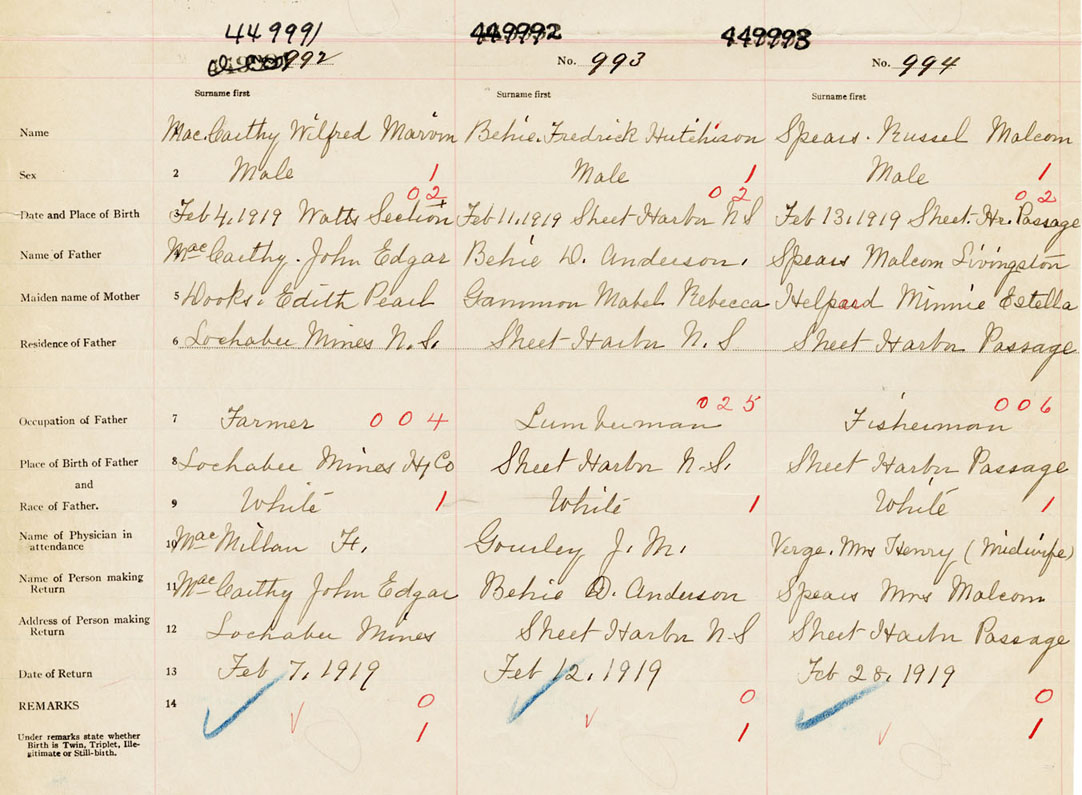 449991 449992 449993
992 No. 993 No. 994
Surname first Surname first Surname first
Name MacCarthy Wilfred Marvin Behie. Fredrick Hutchison Spears. Russel Malcom
Sex 2 Male 1 Male 1 Male 1
02 02 02
Date and Place of Birth 3 Feb 4, 1919 Watts Section Feb 11, 1919 Sheet Harbor N S Feb 13, 1919 Sheet. Hr. Passage
Name of Father MacCarthy. John Edgar Behie D. Anderson. Spears Malcom Livingston
Maiden name of Mother 5 Edith Pearl Gammon Mabel Rebecca Helpard Minnie Estella
Residence of Father 6 Lochaber Mines N.S. Sheet Harbor N. S Sheet Harbor Passage
025 006
Occupation of Father 7 Farmer 004 Lumberman Fisherman
Place of Birth of Father 8 Lochaber Mines Hfx Co Sheet Harbor N.S. Sheet Harbor Passage
and
Race of Father. 9 White 1 White 1 White 1
Name of Physician in
attendance 10 MacMillan H. Gourley J. M. Verge. Mrs Henry (Midwife)
Name of Person making
Return 11 MacCarthy John Edgar Behie D. Anderson Spears Mrs Malcom
Address of Person making
Return 12 Lochaber Mines Sheet Harbor N S Sheet Harbor Passage
Date of Return 13 Feb 7, 1919 Feb 12, 1919 Feb 28, 1919
REMARKS 14 0 0 0
Under remarks state whether 1 1 1
Birth is Twin, Triplet, Ille-
gitimate or Still-birth.